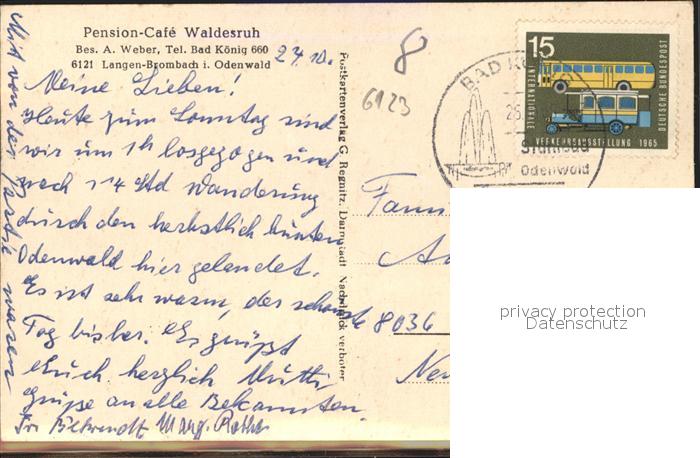 Pension-Café Waldesruh
Bes. A. Weber, Tel. Bad König 660
6121 Langen-Brombach i. Odenwald
24.10.
Meine Lieben!
Heute zum Sonntag sind
wir um 1h losgezogen und
nach 1 1/4 Std Wanderung
durch den herbstlich bunten
Odenwald hier gelandet.
Es ist sehr warm, der schönste
Tag bisher. Es grüßt
Euch herzlich Mutti
Grüße an alle Bekannten.
Mit von der Partie waren
Postkartenverlag G. Regnitz, Darmstadt Nachdruck verboten
8
6123
BAD KÖNIG
Odenwald
15
INTERNATIONALE
VERKEHRSAUSSTELLUNG 1965
DEUTSCHE BUNDESPOST
8036
privacy protection
Datenschutz